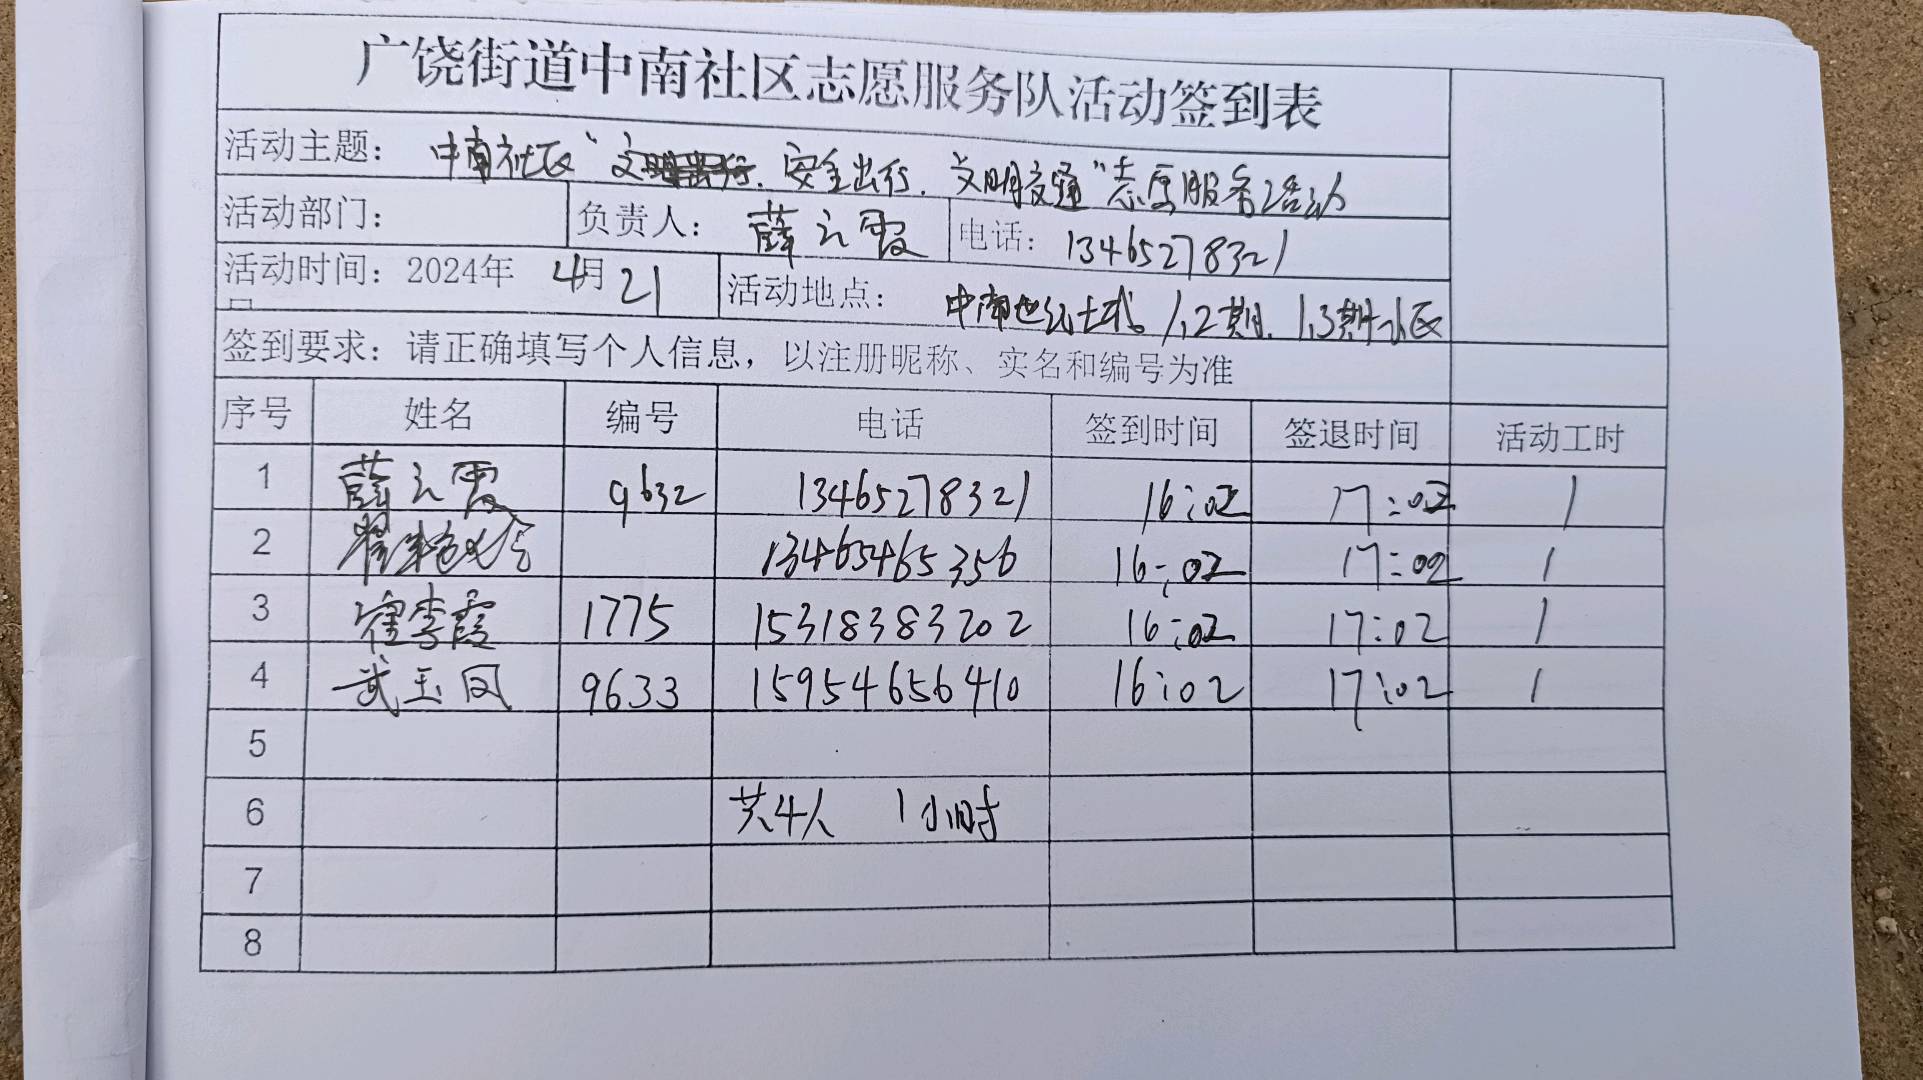 广饶街道中南社区志愿服务队活动签到表
活动主题: 中南社区“文 安全出行、文明交通”志愿服务活动
活动部门: 负责人: 薛云霞 电话: 13465278321
活动时间: 2024年 4月 21 活动地点: 中南世纪城 1.2期、1.3期小区
签到要求: 请正确填写个人信息, 以注册昵称、实名和编号为准
序号 姓名 编号 电话 签到时间 签退时间 活动工时
1 薛云霞 9632 13465278321 16:02 17:02 1
2 13465465356 16:02 17:02 1
3 崔李霞 1775 15318383202 16:02 17:02 1
4 武玉凤 9633 15954656410 16:02 17:02 1
5
6 共4人 1小时
7
8